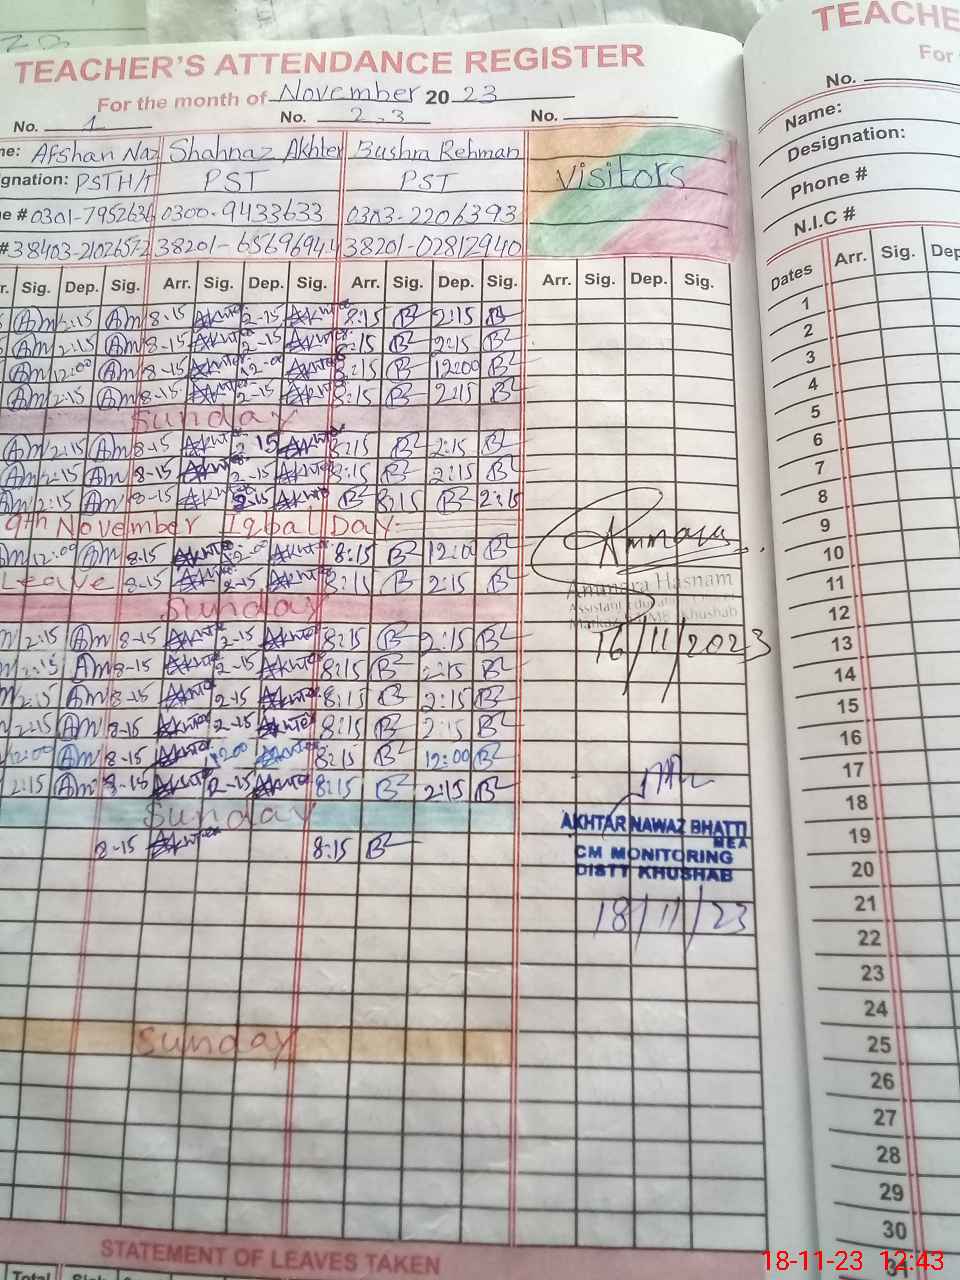 TEACHER'S ATTENDANCE REGISTER
For the month of November 2023
No. 1 No. 2.3 No.
me: Afshan Naz Shahnaz Akhter Bushra Rehman Visitors
gnation: PSTH/T PST PST
e # 0301-7952636 0300-9433633 0303-2206393
# 38403-21026572 38201-65696944 38201-02812940
r. Sig. Dep. Sig. Arr. Sig. Dep. Sig. Arr. Sig. Dep. Sig. Arr. Sig. Dep. Sig.
Am 2:15 Am 8-15 Akhter 2-15 Akhter 8:15 B 2:15 B
Am 2:15 Am 8-15 Akhter 2-15 Akhter 8:15 B 2:15 B
Am 12:00 Am 8-15 Akhter 12-00 Akhter 8:15 B 12:00 B
Am 2:15 Am 8-15 Akhter 2-15 Akhter 8:15 B 2:15 B
Sunday
Am 2:15 Am 8-15 Akhter 2-15 Akhter 8:15 B 2:15 B
Am 2:15 Am 8-15 Akhter 2-15 Akhter 8:15 B 2:15 B
Am 2:15 Am 8-15 Akhter 2:15 Akhter B 8:15 B 2:15
9th November Iqbal Day
Am 12:00 Am 8-15 Akhter 12-00 Akhter 8:15 B 12:00 B
Leave 8-15 Akhter 2-15 Akhter 8:15 B 2:15 B
Sunday
m 2:15 Am 8-15 Akhter 2-15 Akhter 8:15 B 2:15 B
m 2:15 Am 8-15 Akhter 2-15 Akhter 8:15 B 2:15 B
m 2:15 Am 8-15 Akhter 2-15 Akhter 8:15 B 2:15 B
m 2:15 Am 8-15 Akhter 2-15 Akhter 8:15 B 2:15 B
12:00 Am 8-15 Akhter 1200 Akhter 8:15 B 12:00 B
2:15 Am 8-15 Akhter 2-15 Akhter 8:15 B 2:15 B
Sunday
8-15 Akhter 8:15 B
Sunday
Ammara Hasnam
Assistant
Khushab
16/11/2023
AKHTAR NAWAZ BHATTI
MEA
CM MONITORING
DISTT KHUSHAB
18/11/23
STATEMENT OF LEAVES TAKEN
Total Sick
TEACHE
For
No.
Name:
Designation:
Phone #
N.I.C #
Dates Arr. Sig. Dep
1
2
3
4
5
6
7
8
9
10
11
12
13
14
15
16
17
18
19
20
21
22
23
24
25
26
27
28
29
30
31
18-11-23 12:43